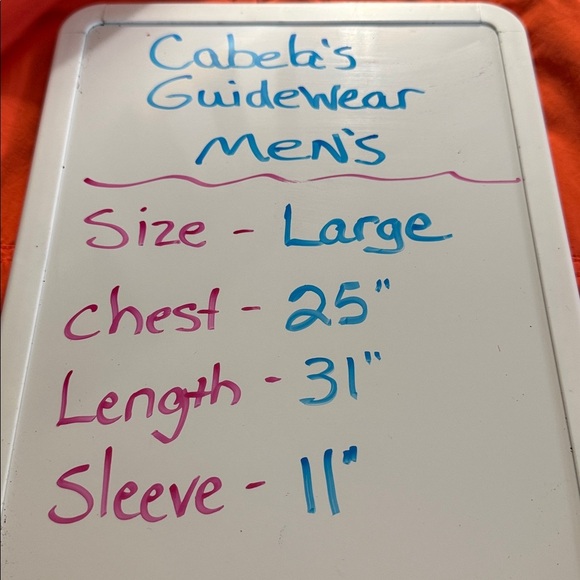 Cabela's
Guidewear
Men's
Size - Large
Chest - 25"
Length - 31"
Sleeve - 11"